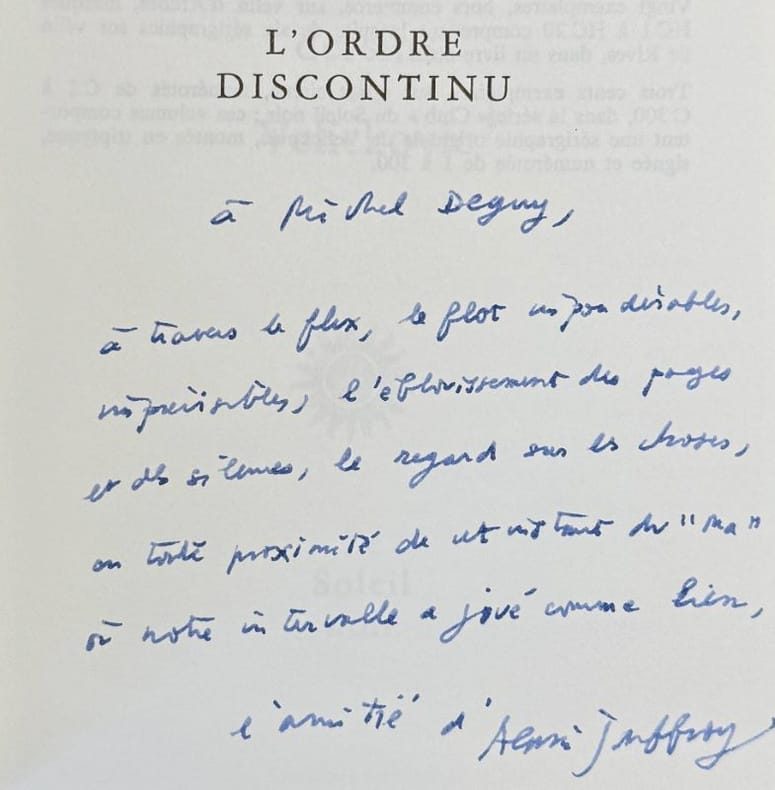 L'ORDRE
DISCONTINU
à Michel Deguy,
à travers le flux, le flot impondérables,
imprévisibles, l'éblouissement des pages
et des silences, le regard sur les choses,
en toute proximité de cet instant du "ma"
où notre intervalle a joué comme lien,
l'amitié d'Alain Jouffroy
Soleil